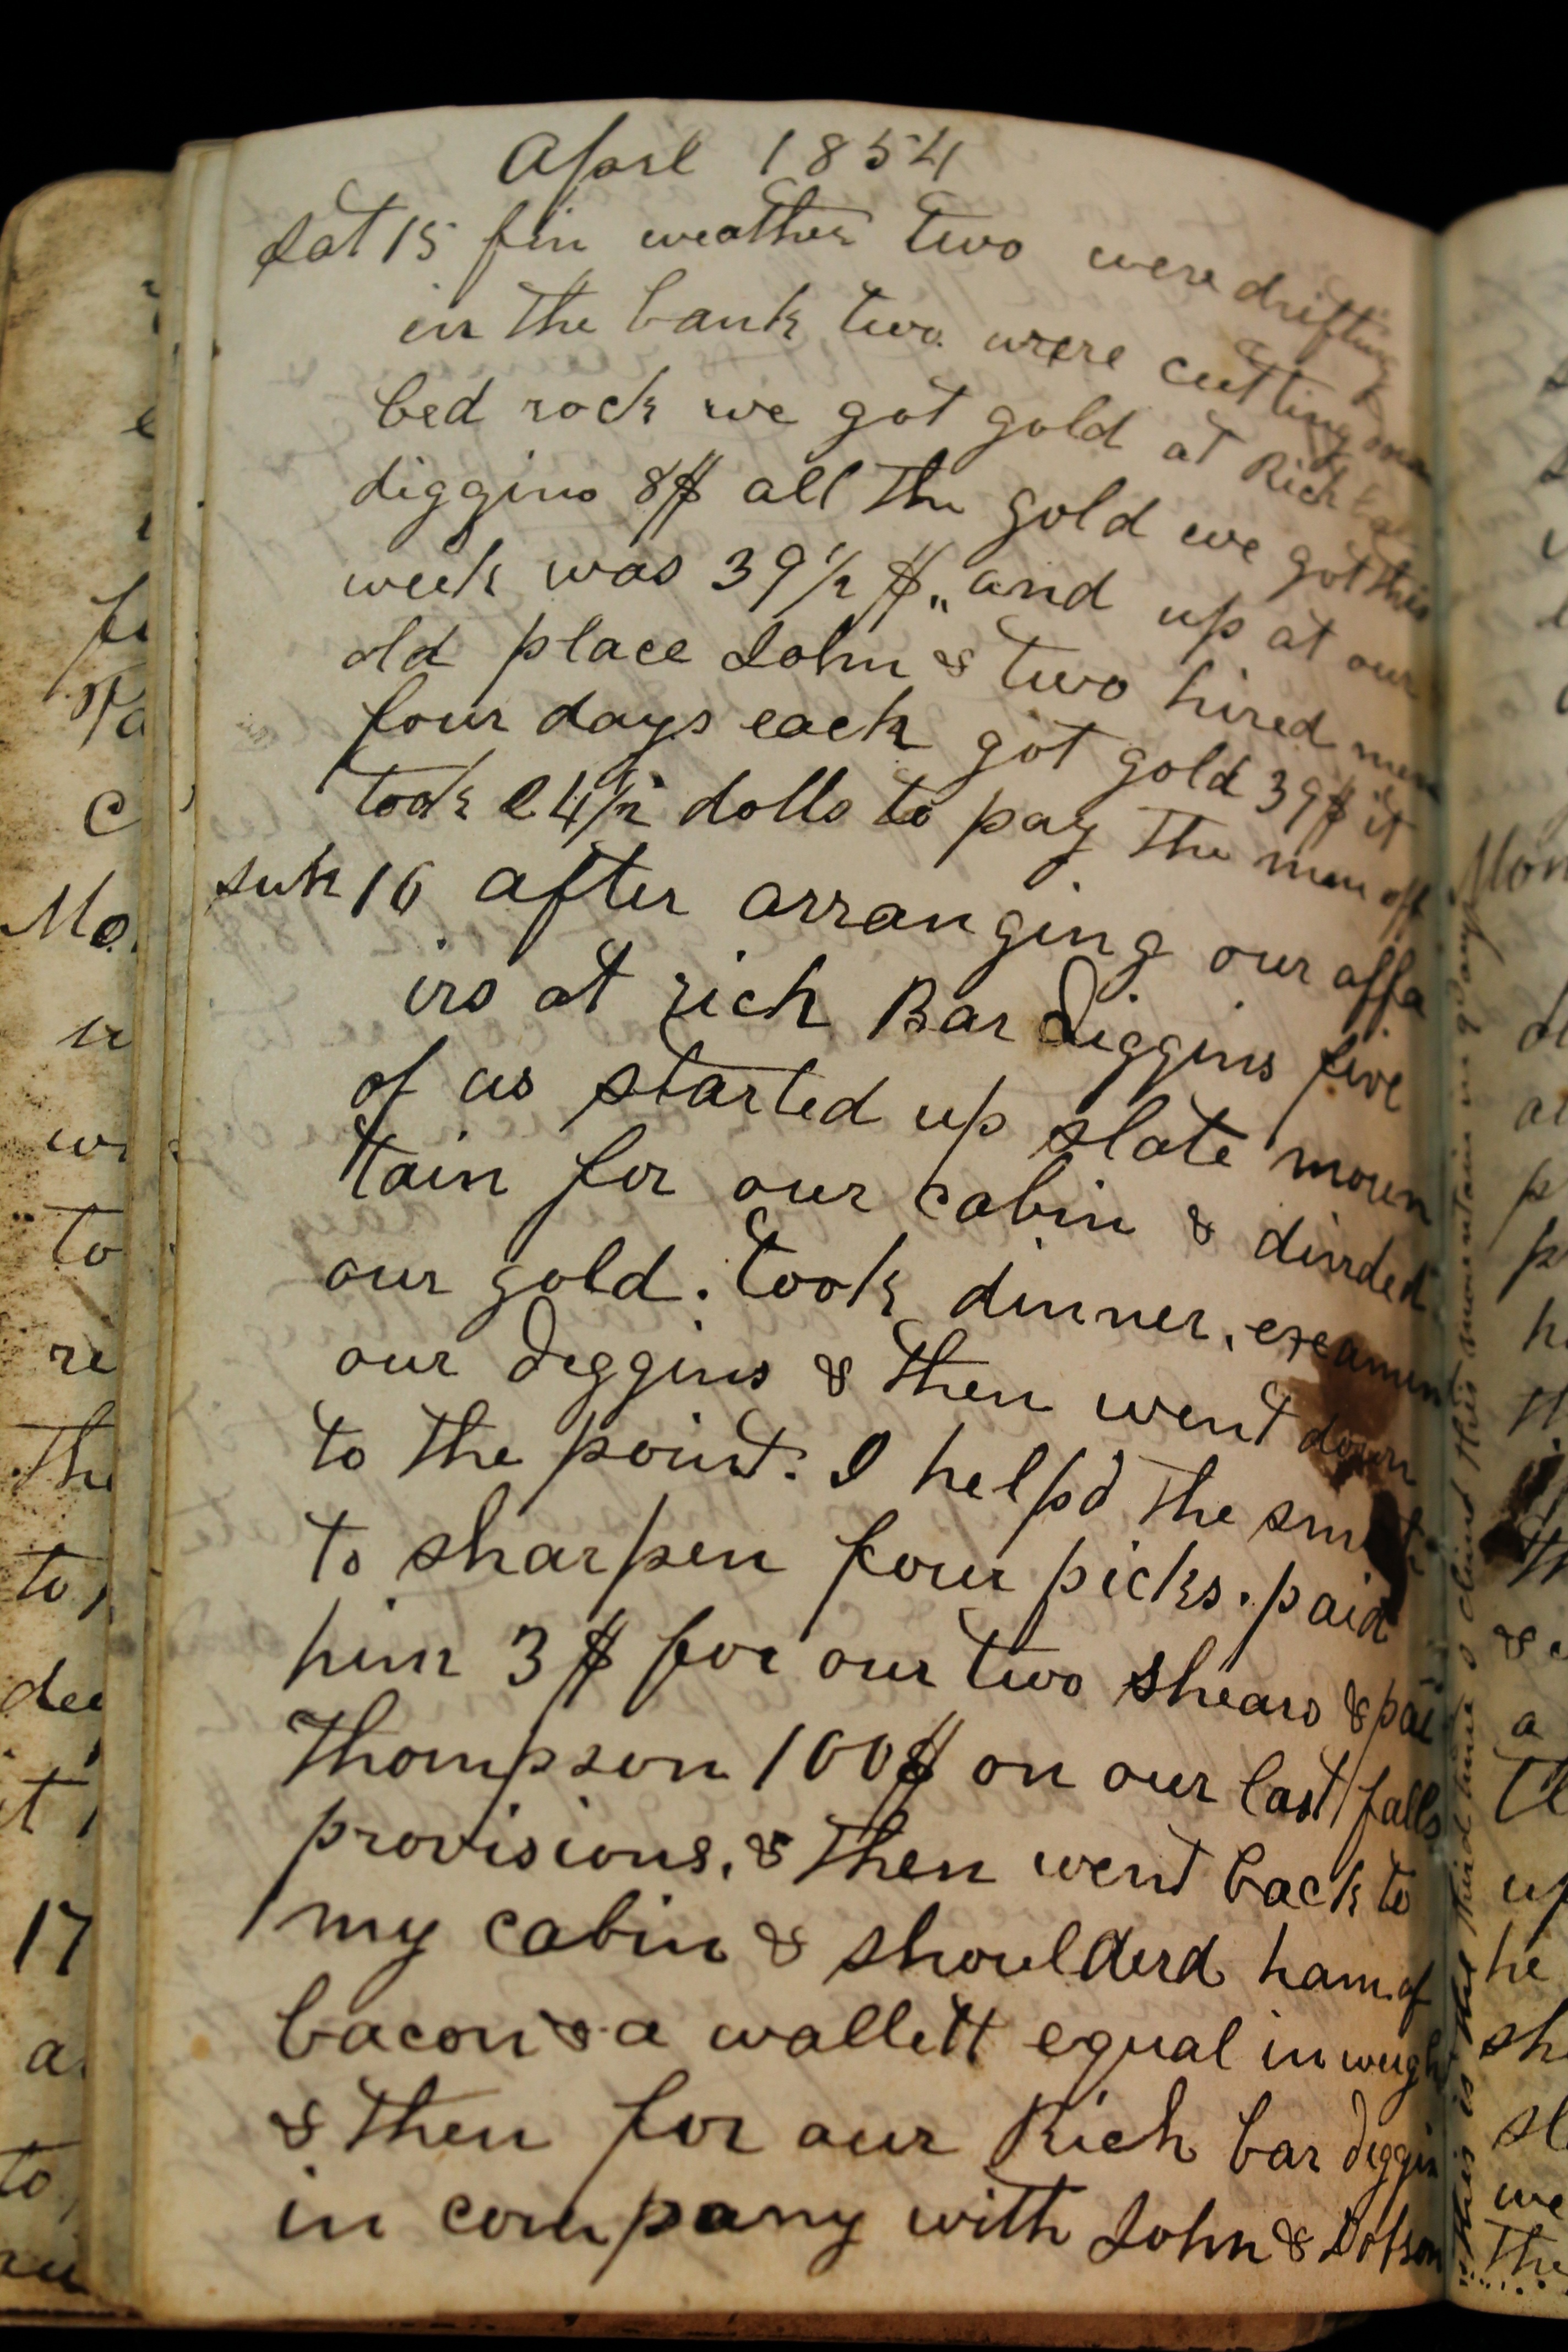 April 1854
Sat 15 fin weather two were drifting
in the bank two were cutting
bed rock we got gold at Rich bar
diggins 8$ all the gold we got this
week was 39 1/2 $,, and up at our
old place John & two hired men
four days each got gold 39$ it
took 24 1/2 dolls to pay the men off
sun 16 after arranging our affa
irs at rich Bar diggins five
of us started up slate moun
tain for our cabin & divided
our gold. took dinner, exeamin
our diggins & then went down
to the point. I help'd the smith
to sharpen four picks. paid
him 3$ for our two shears & pai
Thompson 100$ on our last falls
provisions, & then went back to
my cabin & shoulderd ham of
bacon & a wallett equal in weigh
& then for our Rich bar diggin
in company with John & Dotson
this is the third time I climd this mountain in q days
Mo
to
re
the
to
17
a
to
Mon
a
up
he
we
the